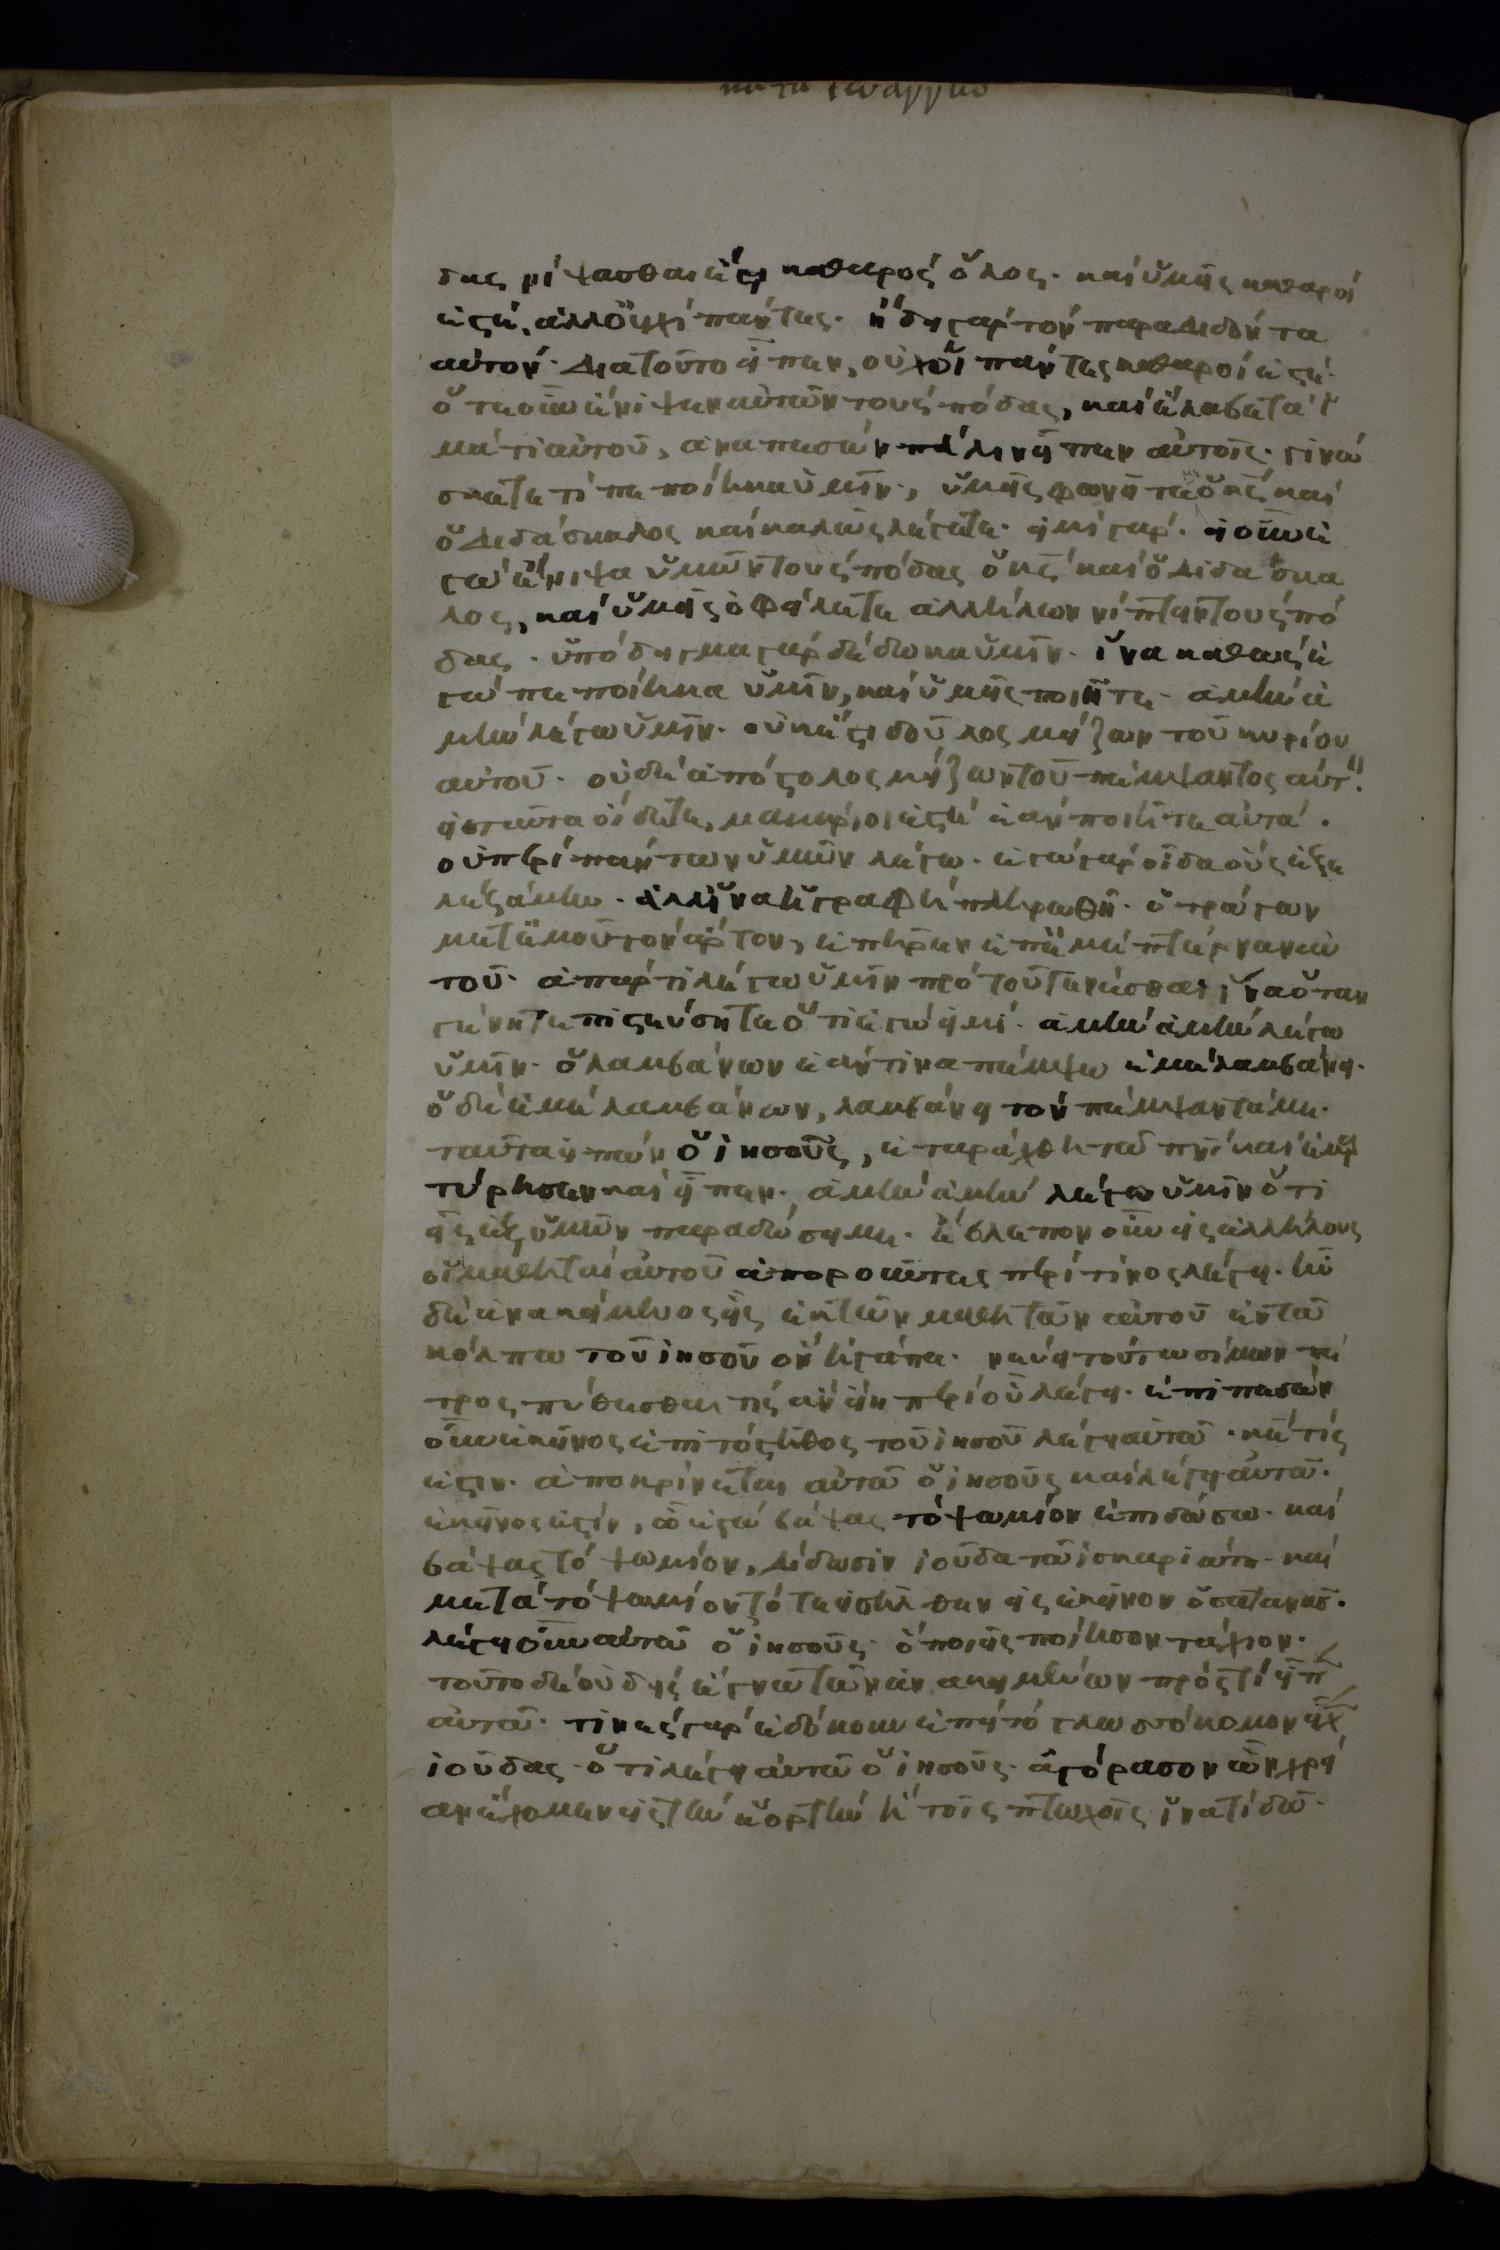 κατα ιωαννην
δας νίψασθαι ἔστι καθαρὸς ὅλος. καὶ ὑμεῖς καθαροί
ἐστέ, ἀλλ οὐχὶ πάντες. ἤδει γὰρ τὸν παραδιδόντα
αὐτόν. διατοῦτο εἶπεν, οὐχὶ πάντες καθαροί ἐστέ.
ὅτε οὖν ἔνιψεν αὐτῶν τοὺς πόδας, καὶ ἔλαβε τὰ ἱ
μάτι αὐτοῦ, ἀναπεσὼν πάλιν εἶπεν αὐτοῖς. γινώ
σκετε τί πεποίηκα ὑμῖν, ὑμεῖς φωνεῖτέ με ὁ κς καὶ
ὁ διδάσκαλος καὶ καλῶς λέγετε. εἰμὶ γάρ. εἰ οὖν ἐ
γὼ ἔνιψα ὑμῶν τοὺς πόδας ὁ κς καὶ ὁ διδάσκα
λος, καὶ ὑμεῖς ὀφείλετε ἀλλήλων νίπτειν τοὺς πό
δας. ὑπόδειγμα γὰρ δέδωκα ὑμῖν. ἵνα καθὼς ἐ
γὼ πεποίηκα ὑμῖν, καὶ ὑμεῖς ποιῆτε. ἀμὴν ἀ
μὴν λέγω ὑμῖν. οὐκ ἔστι δοῦλος μείζων τοῦ κυρίου
αὐτοῦ. οὐδὲ ἀπόστολος μείζων τοῦ πέμψαντος αὐτ.
εἰ ταῦτα οἴδατε, μακάριοί ἐστε ἐὰν ποιῆτε αὐτά.
οὐ περὶ πάντων ὑμῶν λέγω. ἐγὼ γὰρ οἶδα οὓς ἐξε
λεξάμην. ἀλλ ἵνα ἡ γραφὴ πληρωθῇ. ὁ τρώγων
μετ ἐμοῦ τὸν ἄρτον, ἐπῆρεν ἐπ ἐμὲ πτέρναν αὐ
τοῦ. ἀπάρτι λέγω ὑμῖν πρὸ τοῦ γενέσθαι ἵνα ὅταν
γένηται πιστεύσητε ὅτι ἐγώ εἰμι. ἀμὴν ἀμὴν λέγω
ὑμῖν. ὁ λαμβάνων ἐάν τινα πέμψω ἐμὲ λαμβάνει.
ὁ δὲ ἐμὲ λαμβάνων, λαμβάνει τὸν πέμψαντά με.
ταῦτα εἰπὼν ὁ ἰησοῦς, ἐταράχθη τῷ πνι καὶ ἐμαρ
τύρησεν καὶ εἶπεν. ἀμὴν ἀμὴν λέγω ὑμῖν ὅτι
εἷς ἐξ ὑμῶν παραδώσει με. ἔβλεπον οὖν εἰς ἀλλήλους
οἱ μαθηταὶ αὐτοῦ ἀπορούμενοι περὶ τίνος λέγει. ἦν
δὲ ἀνακείμενος εἷς ἐκ τῶν μαθητῶν αὐτοῦ ἐν τῷ
κόλπῳ τοῦ ἰησοῦ ὃν ἠγάπα. νεύει τούτῳ σίμων πέ
τρος, πυθέσθαι τίς ἂν εἴη περὶ οὗ λέγει. ἐπιπεσὼν
οὖν ἐκεῖνος ἐπὶ τὸ στῆθος τοῦ ἰησοῦ λέγει αὐτῷ. κε τίς
ἐστιν. ἀποκρίνεται αὐτῷ ὁ ἰησοῦς καὶ λέγει αὐτῷ.
ἐκεῖνός ἐστιν, ᾧ ἐγὼ βάψας τὸ ψωμίον ἐπιδώσω. καὶ
βάψας τὸ ψωμίον, δίδωσιν ἰούδα τῷ ἰσκαριώτῃ. καὶ
μετὰ τὸ ψωμίον τότε εἰσῆλθεν εἰς ἐκεῖνον ὁ σατανᾶς.
λέγει οὖν αὐτῷ ὁ ἰησοῦς. ὃ ποιεῖς ποίησον τάχιον.
τοῦτο δὲ οὐδεὶς ἔγνω τῶν ἀνακειμένων πρὸς τί εἶπ
αὐτῷ. τινὲς γὰρ ἐδόκουν ἐπεὶ τὸ γλωσσόκομον εἶχ
ἰούδας. ὅτι λέγει αὐτῷ ὁ ἰησοῦς. ἀγόρασον ὧν χρεί
αν ἔχομεν εἰς τὴν ἑορτὴν ἢ τοῖς πτωχοῖς ἵνα τὶ δῶ.